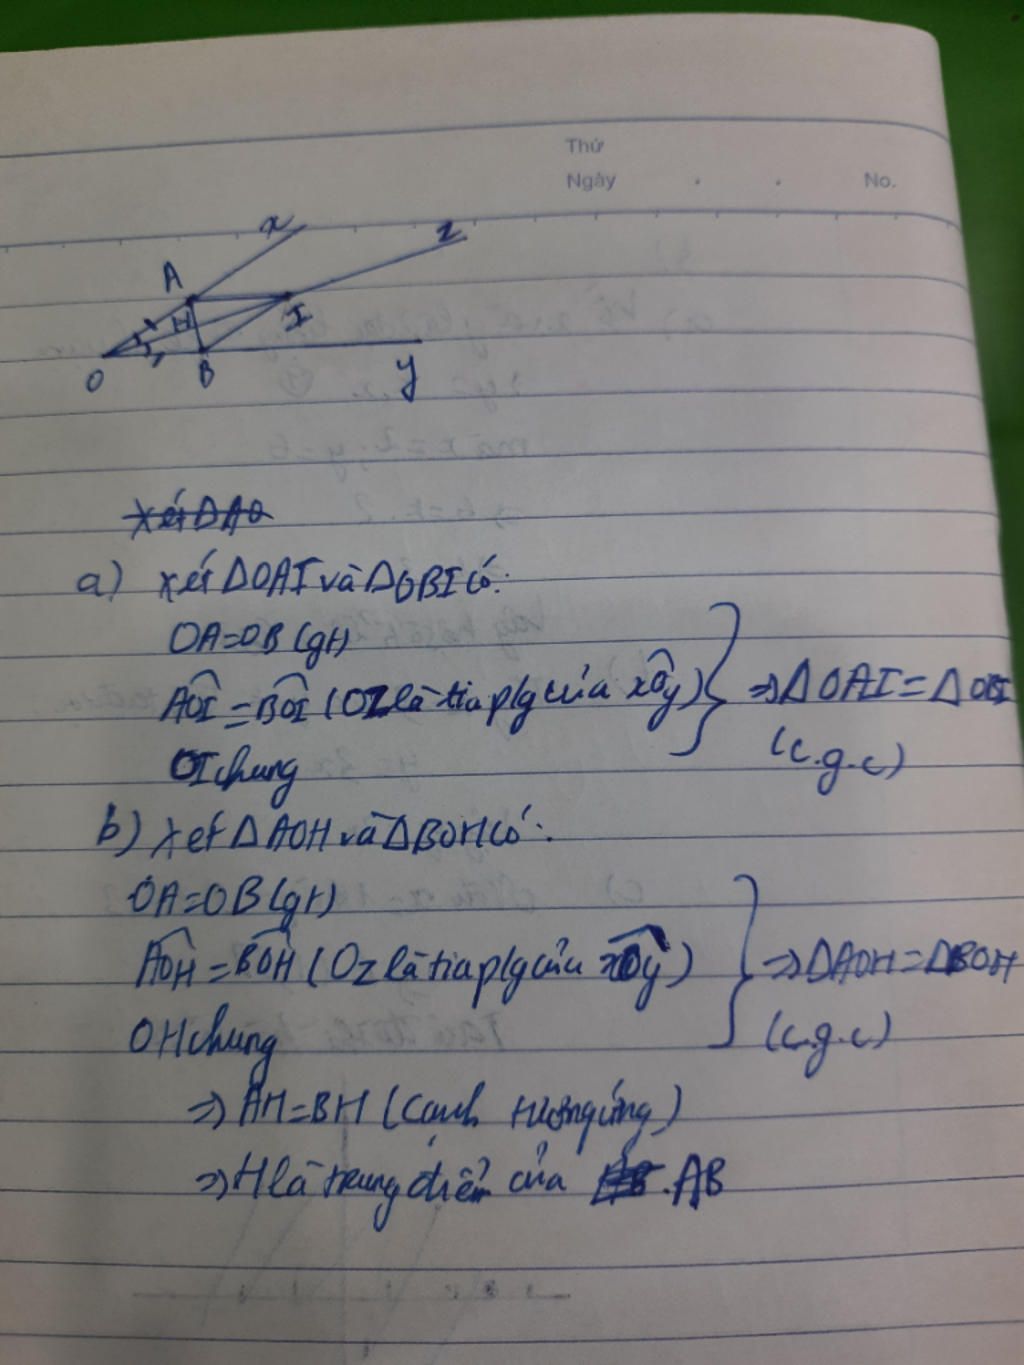 Thứ
Ngày . . No.
x
z
A
H
I
O
B
y
Xét ΔAO
a) Xét ΔOAI và ΔOBI có:
OA=OB (gt)
AOI = BOI (Oz là tia p/g của xOy) ⇒ ΔOAI = ΔOBI
OI chung (c.g.c)
b) Xét ΔAOH và ΔBOH có:
OA=OB (gt)
AOH = BOH (Oz là tia p/g của xOy) ⇒ ΔAOH = ΔBOH
OH chung (c.g.c)
⇒ AH=BH (cạnh tương ứng)
⇒ H là trung điểm của AB